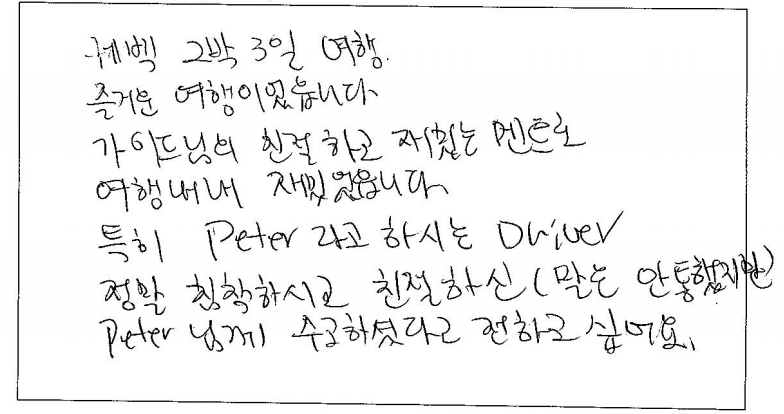 퀘벡 2박 3일 여행.
즐거운 여행이었읍니다
가이드님의 친절하고 재밌는 멘트로
여행내내 재밌었읍니다.
특히 Peter 라고 하시는 Driver
정말 침착하시고 친절하신 (말은 안통했지만)
Peter 님께 수고하셨다고 전하고 싶어요.